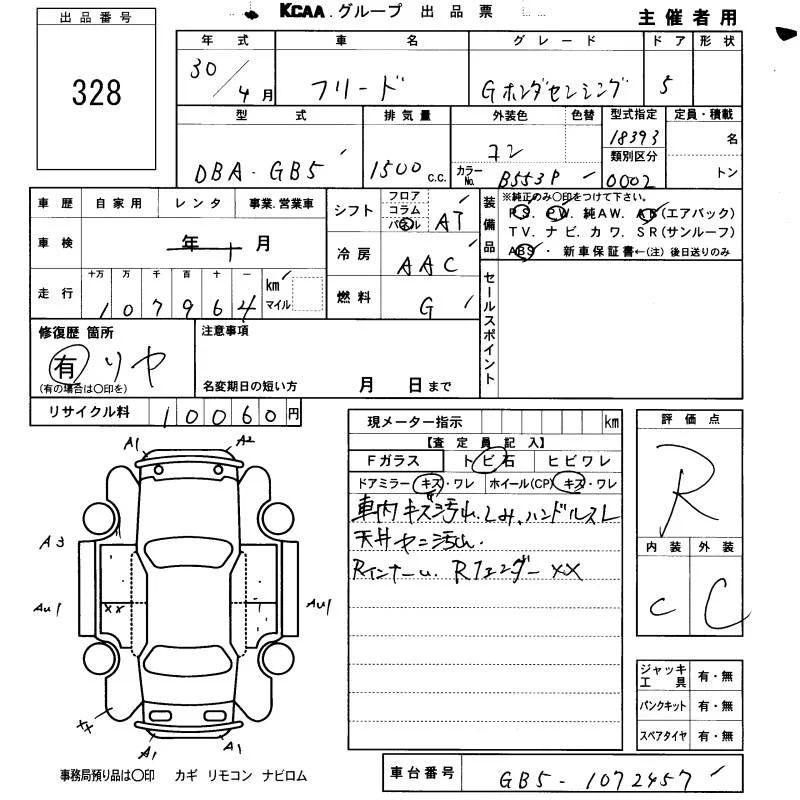 KCAA.グループ 出品票
主催者用
出品番号
328
年式 車名 グレード ドア 形状
30/4月 フリード Gホンダセンシング 5
型式 排気量 外装色 色替 型式指定 定員・積載
DBA-GB5 1500c.c. コン 18393 名
カラーNo. B553P 類別区分 0002 トン
車歴 自家用 レンタ 事業.営業車
車検 年 月
走行 十万 万 千 百 十 一
107964 km マイル
シフト フロア コラム パネル AT
冷房 AAC
燃料 G
装備品 ※純正のみ○印をつけて下さい。
PS. PW. 純AW. AB(エアバック)
TV. ナビ. カワ. SR(サンルーフ)
ABS・新車保証書←(注)後日送りのみ
セールスポイント
修復歴 箇所
有 リヤ
(有の場合は○印を)
注意事項
名変期日の短い方 月 日まで
リサイクル料 10060円
現メーター指示 km
【査定員記入】
Fガラス トビ石 ヒビワレ
ドアミラー キズ・ワレ ホイール(CP) キズ・ワレ
車内キズ汚れ.しみ.ハンドルスレ
天井ヤニ汚れ.
Rインナーu. Rフェンダーxx
評価点
R
内装 外装
C C
ジャッキ工具 有・無
パンクキット 有・無
スペアタイヤ 有・無
A1 A2
A3
Au1 xx Au1
xx
A1 A1
事務局預り品は○印 カギ リモコン ナビロム
車台番号 GB5-1072457